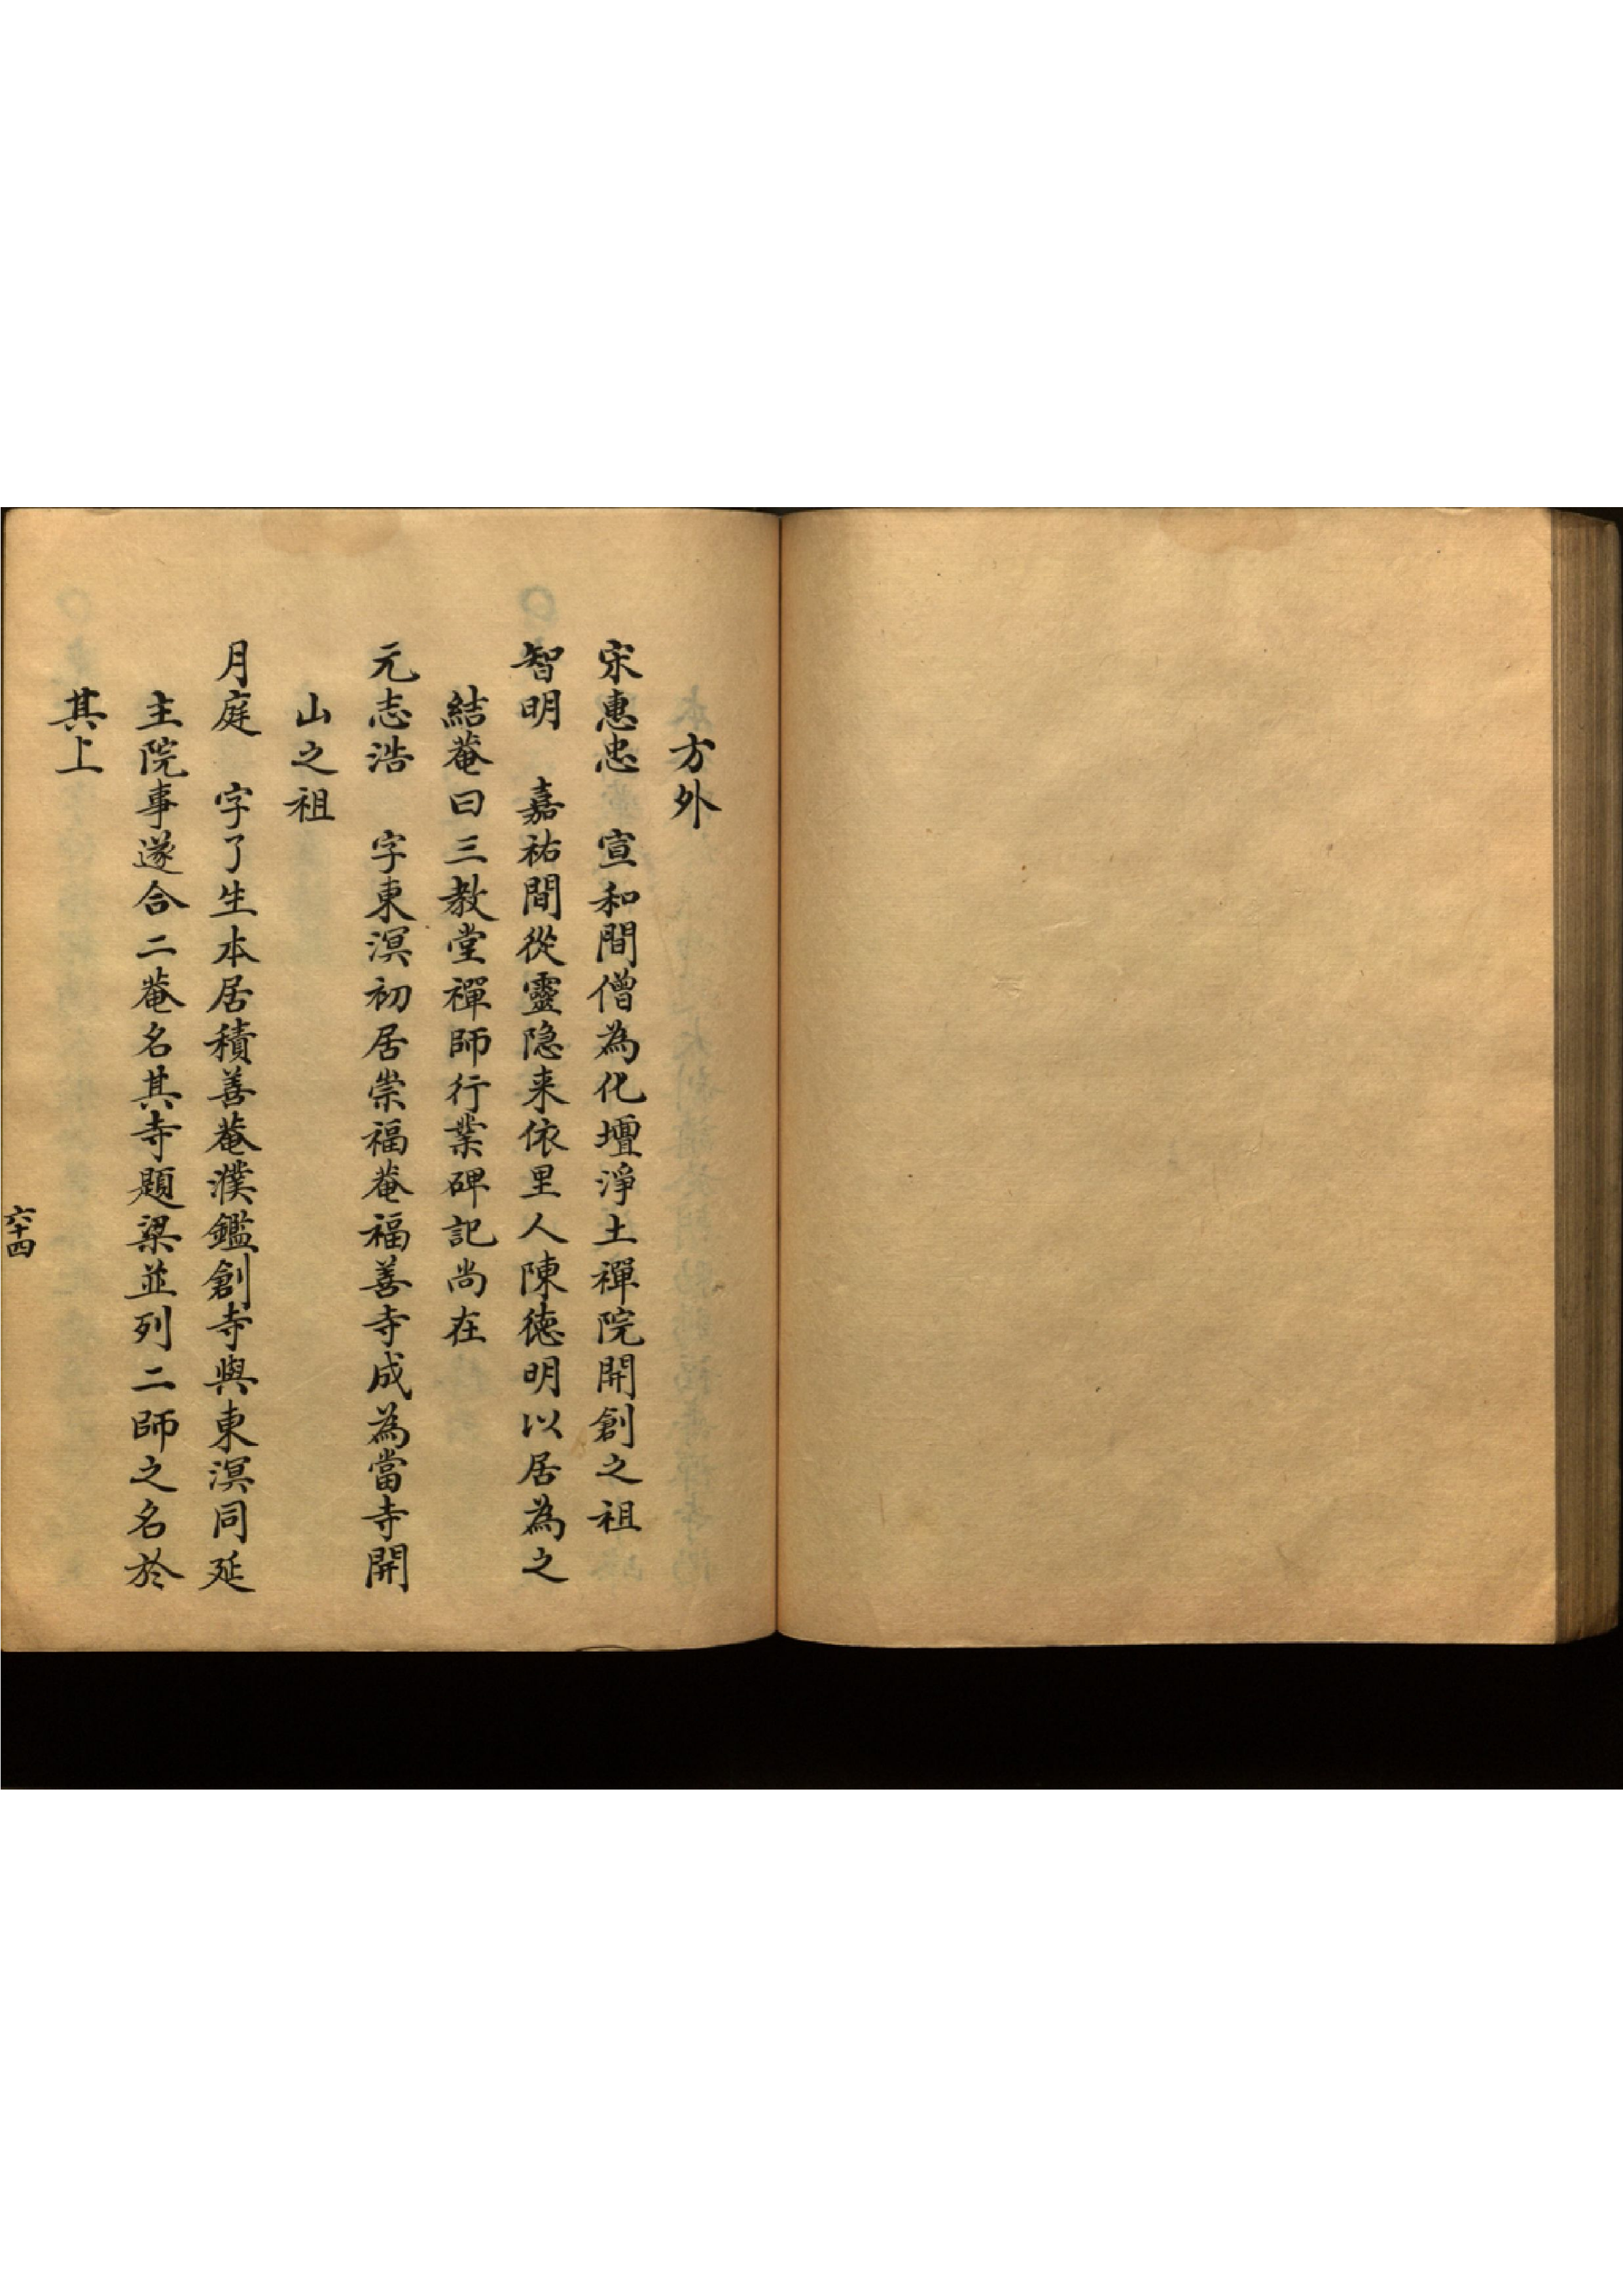 方外
宋惠忠　宣和間僧為化壇淨土禪院開創之祖
智明　嘉祐間從靈隐来依里人陳德明以居為之
結菴曰三教堂禪師行業碑記尚在
元志浩　字東溟初居崇福菴福善寺成為當寺開
山之祖
月庭　字了生本居積善菴濮鑑創寺與東溟同延
主院事遂合二菴名其寺題梁並列二師之名於
其上
六十四